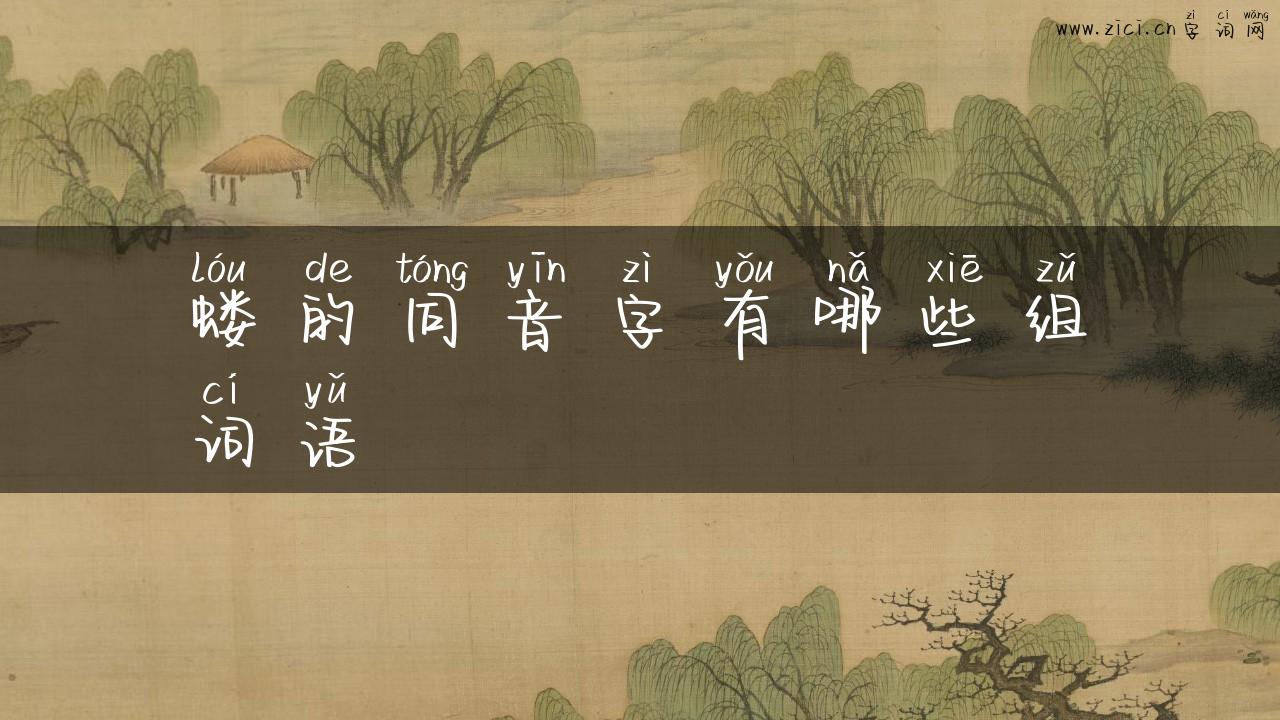 zì cí wǎng
www.zici.cn 字 词 网
lóu de tóng yīn zì yǒu nǎ xiē zǔ
蝼 的 同 音 字 有 哪 些 组
cí yǔ
词 语